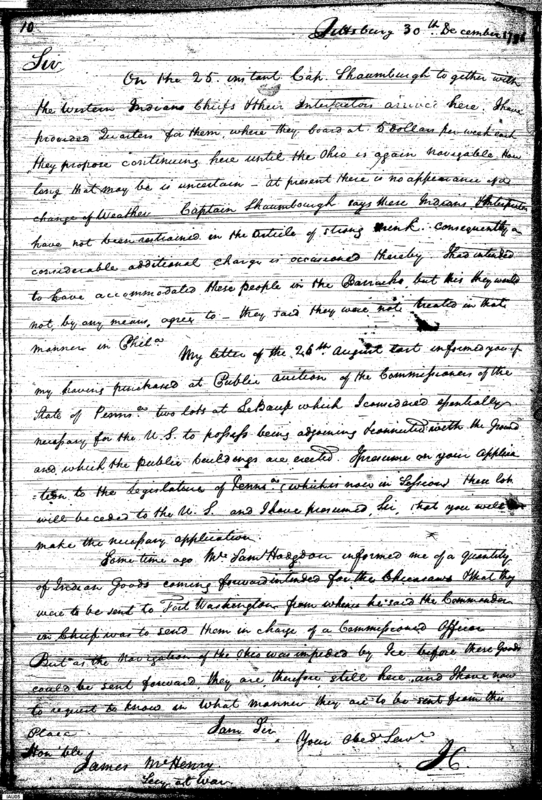 10
Pittsburg 30th December 1796
Sir
On the 25 instant Cap. Shaumburgh together with
the Western Indians Chiefs & their Interpretors arrived here. I have
provided Quarters for them, where they board at 5 dollars per week each
they propose continuing here until the Ohio is again navigable, how
long that may be is uncertain – at present there is no appearance of a
change of Weather Captain Shaumburgh says these Indians & Interpretors
have not been restrained in the Article of strong drink. consequently a
considerable additional charge is occasioned thereby I had intended
to have accommodated these people in the Barracks, but this they would
not, by any means, agree to – they said they were not treated in that
manner in Phila
My letter of the 26th August last informed you of
my having purchased at Public auction of the Commissioners of the
State of Penns.a two Lots at LeBauf which I considered essentially
necessary for the U.S. to possess being adjoining & connected with the Ground
and which the public buildings are erected. I presume on your Applica
-tion to the Legislature of Penna (which is now in Session) these lots
will be ceded to the U.S. and I have presumed, Sir, that you will
make the necessary application
Some time ago Mr Saml Hodgdon informed me of a quantity
of Indian Goods coming forward intended for the Chicasaws & that they
were to be sent to Fort Washington from whence he said the Commander
in Chief was to send them in charge of a Commissioned Officer
But as the Navigation of the Ohio was impeded by Ice before these Goods
could be sent forward, they are therefore still here, and I have now
to request to know in what manner they are to be sent from this
Place
I am Sir
Your Obed Serv
Hon'ble
James McHenry
Secy at War